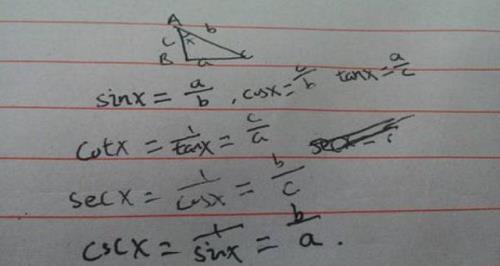 A
c x b
B a C
sinx = a/b , cosx = c/b tanx = a/c
cotx = 1/tanx = c/a
secx = 1/cosx = b/c
cscx = 1/sinx = b/a .